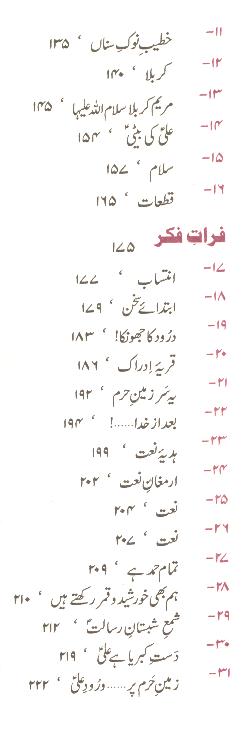 ۱۱- خطیبِ نوکِ سناں ، ۱۳۵
۱۲- کربلا ، ۱۴۰
۱۳- مریم کربلا سلام اللہ علیہا ، ۱۴۵
۱۴- علیؑ کی بیٹیؑ ، ۱۵۴
۱۵- سلام ، ۱۵۷
۱۶- قطعات ، ۱۶۵
فراتِ فکر ۱۷۵
۱۷- انتساب ، ۱۷۷
۱۸- ابتدائے سخن ، ۱۷۹
۱۹- درُود کا جھونکا! ، ۱۸۳
۲۰- قریۂ اِدراک ، ۱۸۶
۲۱- یہ سَر زمینِ حرم ، ۱۹۲
۲۲- بعد از خدا......! ، ۱۹۴
۲۳- ہدیۂ نعت ، ۱۹۹
۲۴- ارمغانِ نعت ، ۲۰۲
۲۵- نعت ، ۲۰۴
۲۶- نعت ، ۲۰۷
۲۷- تمام حمد ہے ، ۲۰۹
۲۸- ہم بھی خورشید و قمر رکھتے ہیں ، ۲۱۰
۲۹- شمعِ شبستانِ رسالتؐ ، ۲۱۲
۳۰- دَستِ کبریا ہے علیؑ ، ۲۱۹
۳۱- زمینِ حَرم پر......ورُودِ علیؑ ، ۲۲۲